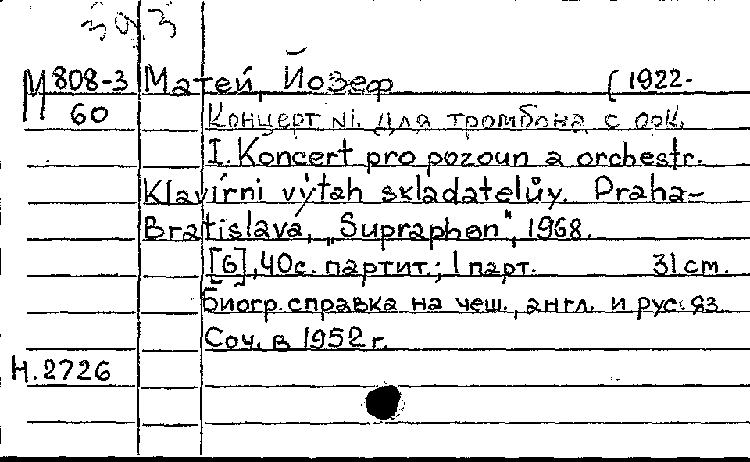 393
М 808-3 Матей, Йозеф (1922-
60 Концерт №1. для тромбона с орк.
I. Koncert pro pozoun a orchestr.
Klavírni výtah skladatelůy. Praha-
Bratislava, „Supraphon", 1968.
[6], 40 с. партит.; 1 парт. 31 cm.
Биогр. справка на чеш., англ. и рус. яз.
Соч. в 1952 г.
Н.2726